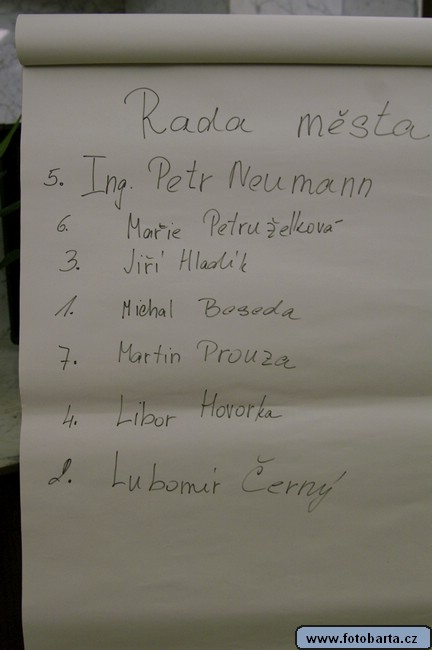 Rada města
5. Ing. Petr Neumann
6. Marie Petruželková
3. Jiří Hladík
1. Michal Beseda
7. Martin Prouza
4. Libor Hovorka
2. Lubomír Černý
www.fotobarta.cz